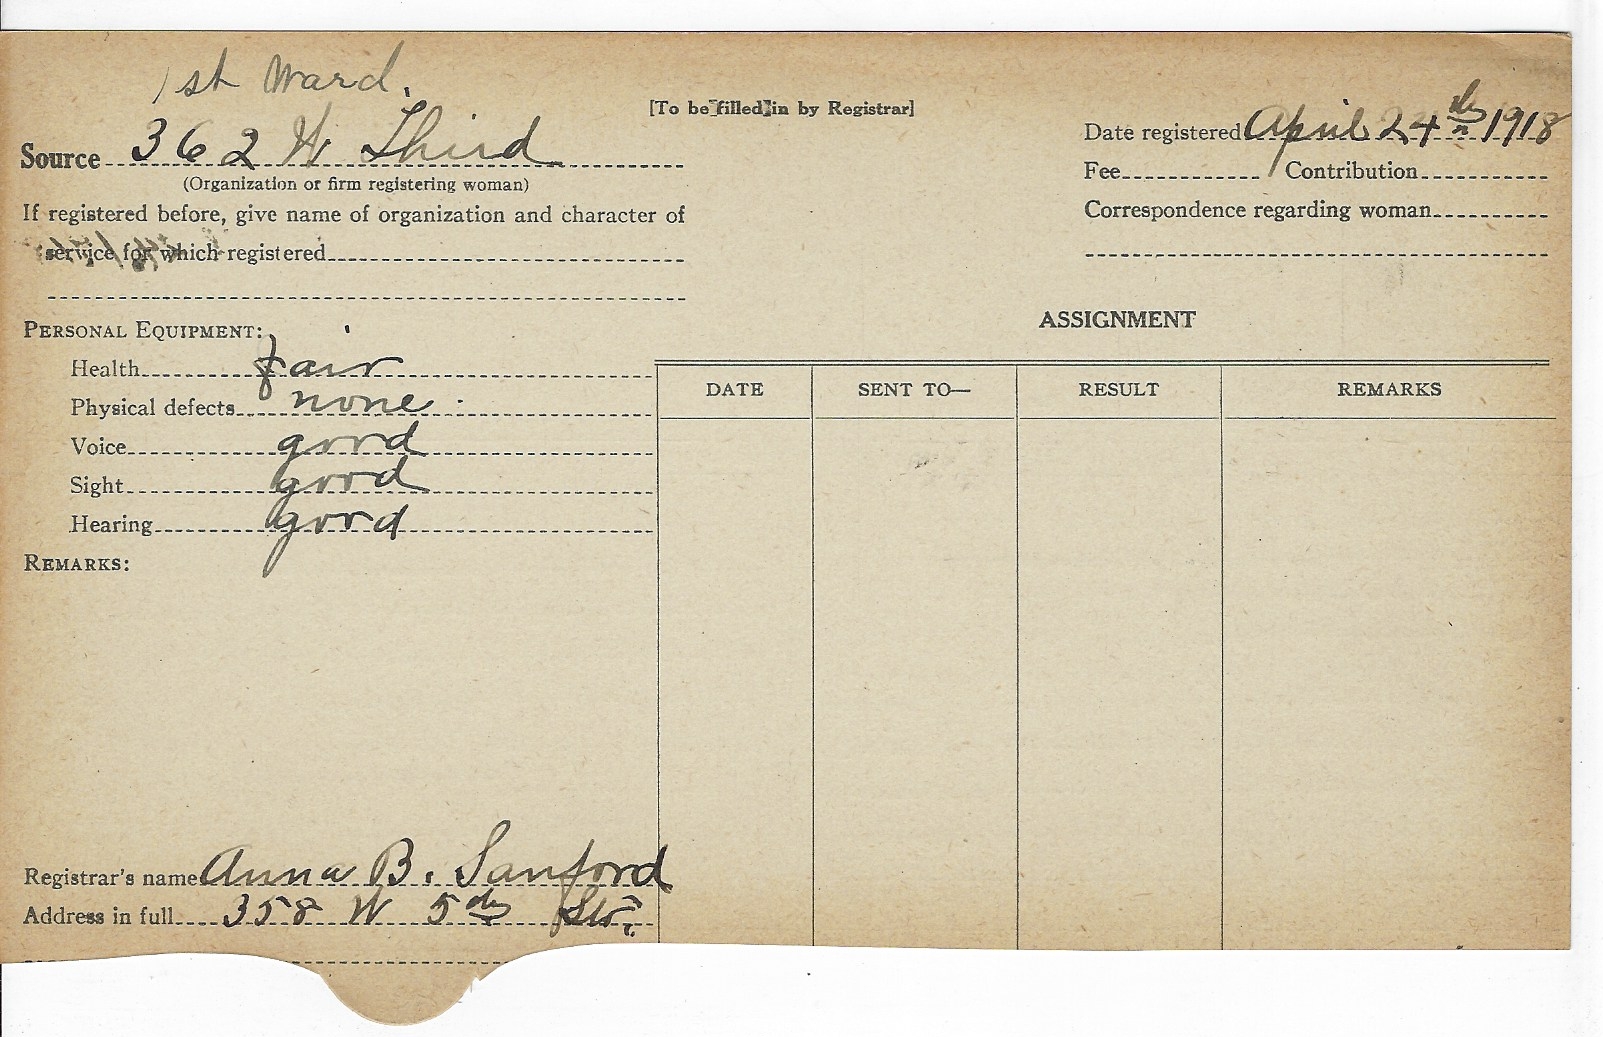 1st Ward.
[To be filled in by Registrar]
Source 362 W Third
(Organization or firm registering woman)
If registered before, give name of organization and character of
service for which registered
Date registered April 24th 1918
Fee Contribution
Correspondence regarding woman
PERSONAL EQUIPMENT:
Health fair
Physical defects none
Voice good
Sight good
Hearing good
REMARKS:
ASSIGNMENT
DATE SENT TO— RESULT REMARKS
Registrar's name Anna B. Sanford
Address in full 358 W 5th Str.